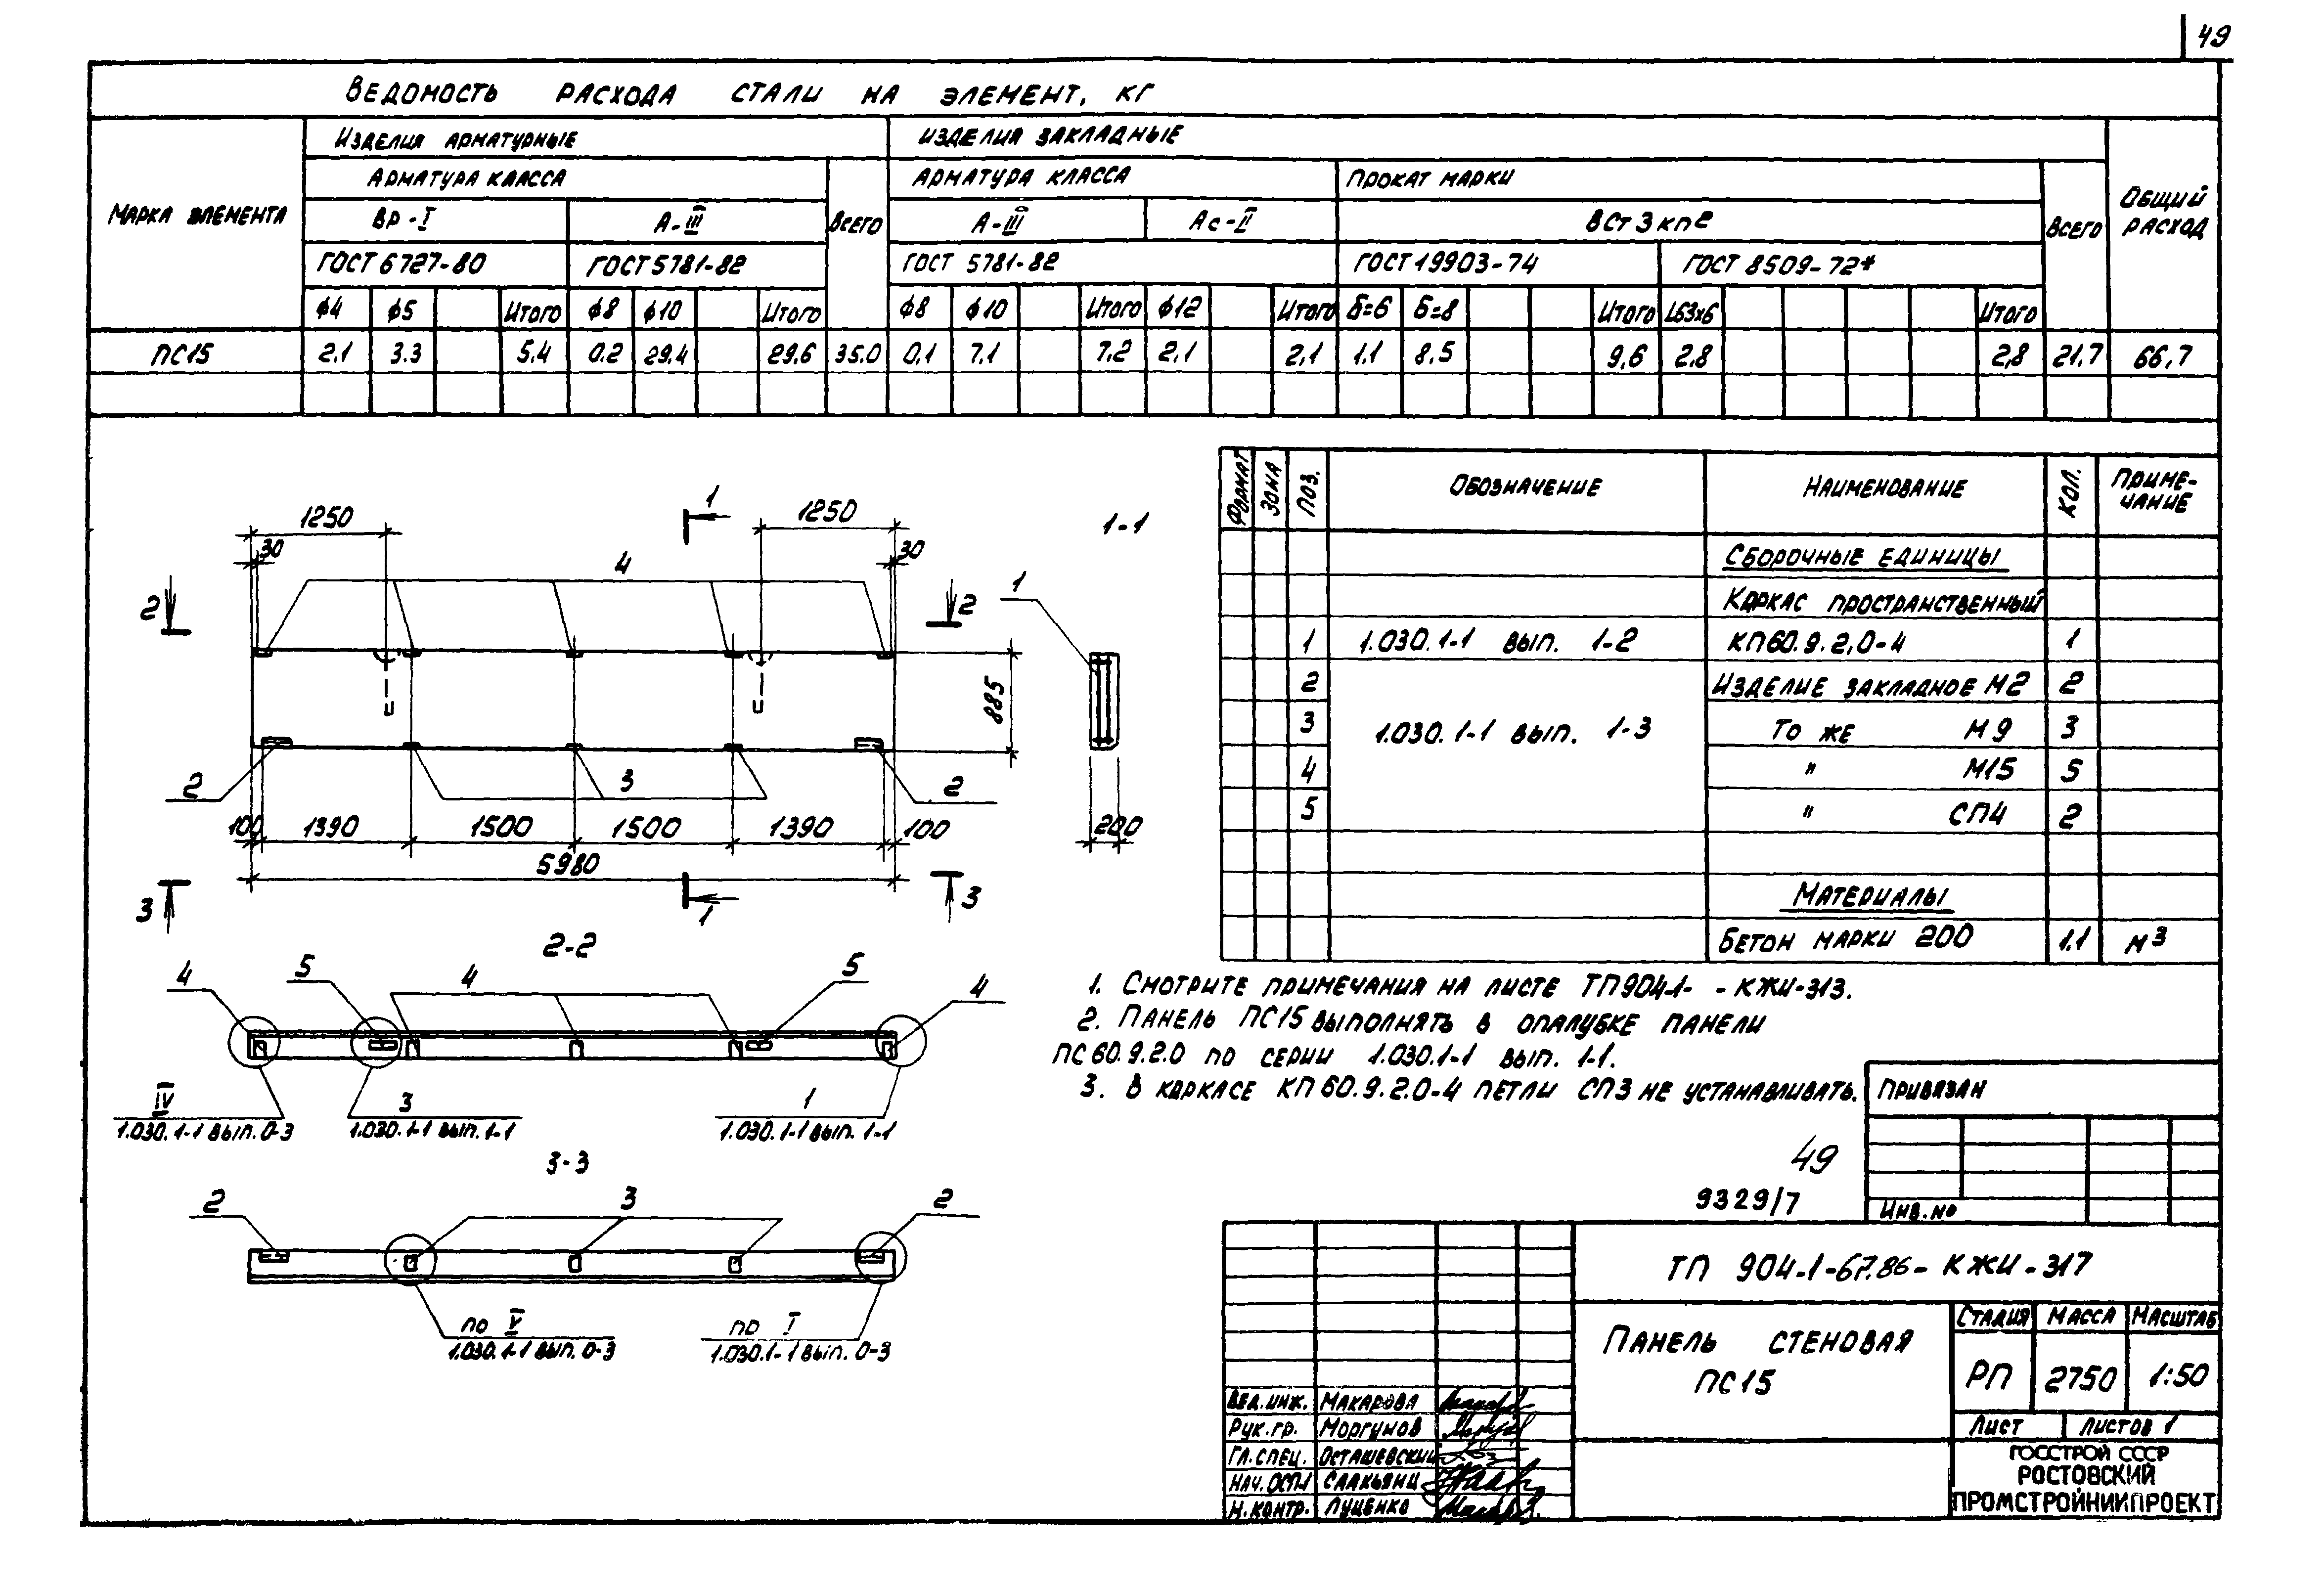 49
Ведомость расхода стали на элемент, кг
Марка элемента
Изделия арматурные
Изделия закладные
Общий расход
Арматура класса
Всего
Арматура класса
Прокат марки
Всего
Вр-I
А-III
А-III
Ас-II
ВСт3кп2
ГОСТ 6727-80
ГОСТ 5781-82
ГОСТ 5781-82
ГОСТ 19903-74
ГОСТ 8509-72*
ф4 ф5 Итого ф8 ф10 Итого ф8 ф10 Итого ф12 Итого δ=6 δ=8 Итого L63х6 Итого
ПС15 2.1 3.3 5.4 0.2 29.4 29.6 35.0 0.1 7.1 7.2 2.1 2,1 1.1 8.5 9,6 2.8 2,8 21.7 66,7
1250
1
1250
30
30
4
2
2
885
2
3
2
100 1390 1500 1500 1390 100
5980
3
1
3
1-1
1
200
2-2
4 5 4 5 4
IV
1.030.1-1 вып. 0-3
3
1.030.1-1 вып. 1-1
1
1.030.1-1 вып. 1-1
3-3
2 3 2
по V
1.030.1-1 вып. 0-3
по I
1.030.1-1 вып. 0-3
Формат Зона Поз. Обозначение Наименование Кол. Приме-
чание
Сборочные единицы
Каркас пространственный
1 1.030.1-1 вып. 1-2 КП60.9.2,0-4 1
2 Изделие закладное М2 2
3 1.030.1-1 вып. 1-3 То же М9 3
4 " М15 5
5 " СП4 2
Материалы
Бетон марки 200 1.1 м3
1. Смотрите примечания на листе ТП904-1- -КЖИ-313.
2. Панель ПС15 выполнять в опалубке панели
ПС60.9.2.0 по серии 1.030.1-1 вып. 1-1.
3. В каркасе КП60.9.2.0-4 петли СП3 не устанавливать.
Привязан
Инв.no
49
9329/7
ТП 904-1-67.86-КЖИ-317
Панель стеновая
ПС15
Стадия Масса Масштаб
РП 2750 1:50
Лист Листов 1
ГОССТРОЙ СССР
РОСТОВСКИЙ
ПРОМСТРОЙНИИПРОЕКТ
Вед.инж. Макарова
Рук.гр. Моргунов
Гл.спец. Осташевский
Нач.ОСП1 Саакьянц
Н.контр. Луценко